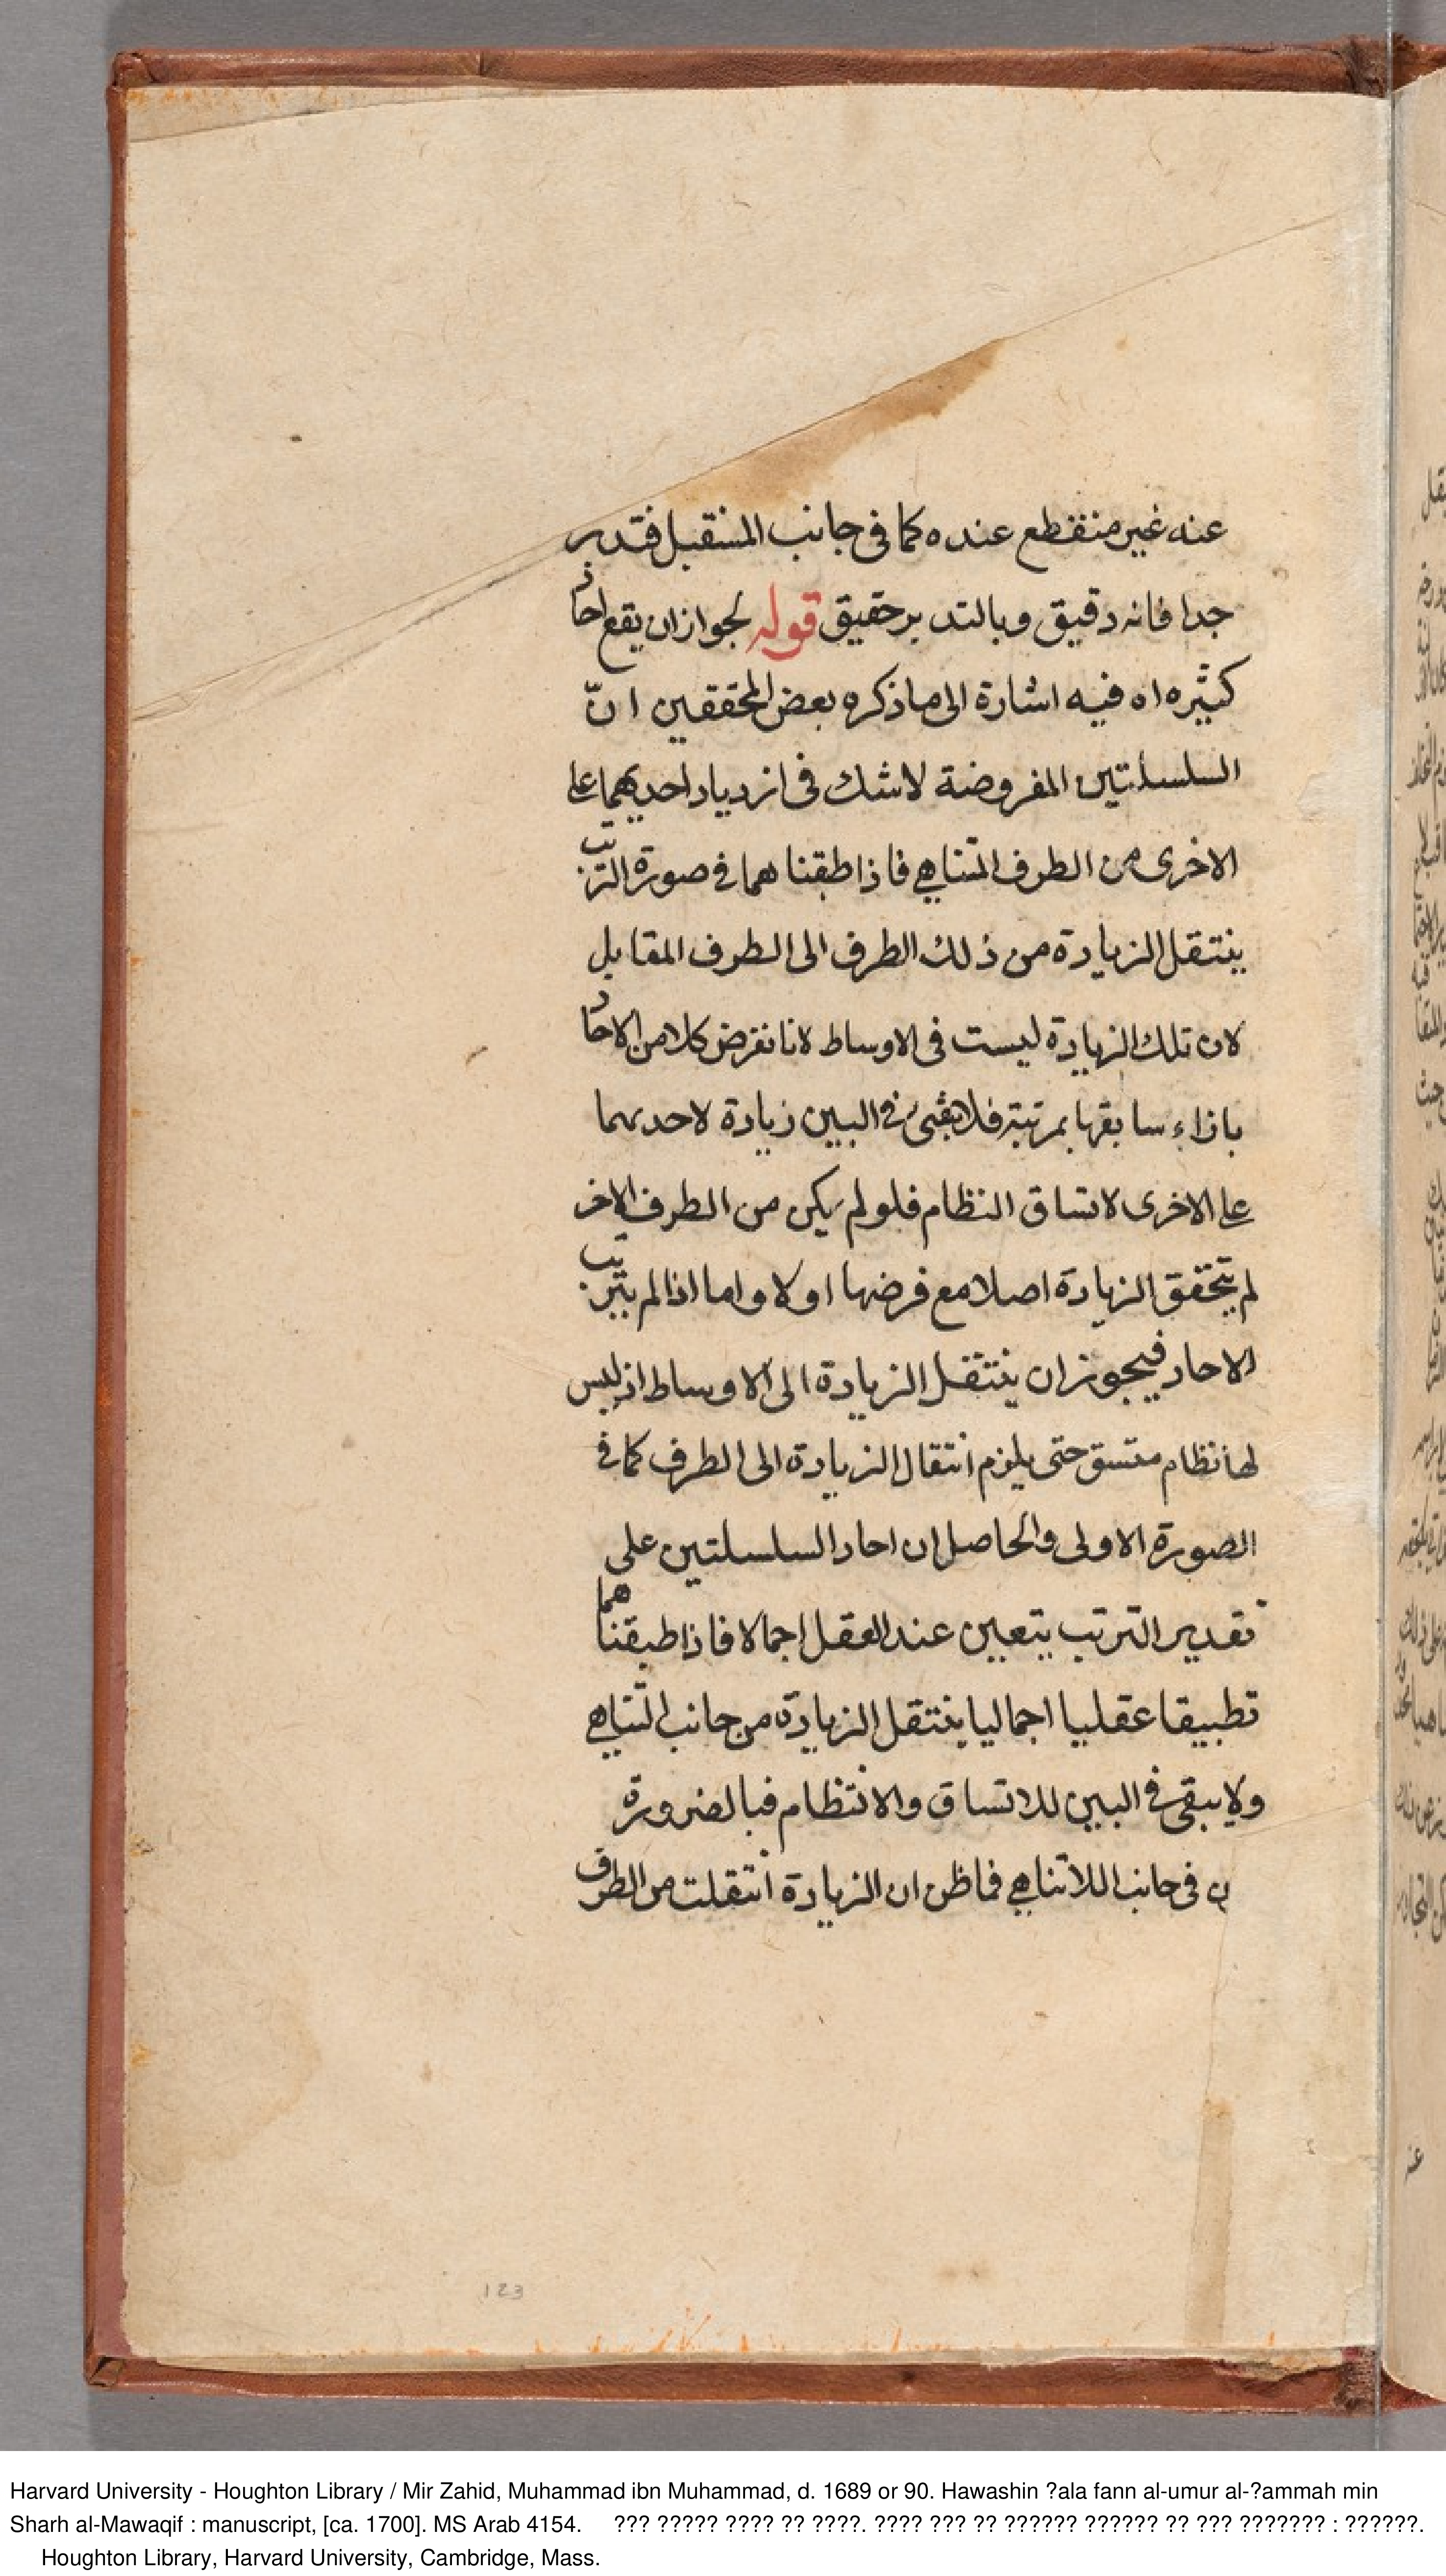 عنه غير منقطع عنده كما فى جانب المستقبل فتدبر
جدا فانه دقيق وبالتدبر حقيق قوله لجواز ان يقع احاد
كثيره اه فيه اشارة الى ما ذكره بعض المحققين انّ
السلسلتين المفروضة لا شك فى ازدياد احديهما على
الاخرى من الطرف المتناهي فاذا طبقنا هما فى صورة الترتب
ينتقل الزيادة من ذلك الطرف الى الطرف المقابل
لان تلك الزيادة ليست فى الاوساط لانا نفرض كلا من الاحاد
بازاء سابقها بمرتبة فلا يبقى فى البين زيادة لاحدىهما
على الاخرى لاتساق النظام فلو لم يكن من الطرف الاخر
لم يتحقق الزيادة اصلا مع فرضها اولا واما اذا لم يترتب
الاحاد فيجوز ان ينتقل الزيادة الى الاوساط اذ ليس
لها نظام متسق حتى يلزم انتقال الزيادة الى الطرف كما فى
الصورة الاولى والحاصل ان احاد السلسلتين على
تقدير الترتب يتعين عند العقل اجمالا فاذا طبقناهما
تطبيقا عقليا اجماليا ينتقل الزيادة من جانب التناهي
ولا يبقى فى البين للاتساق والانتظام فبالضرورة
فى جانب اللاتناهي فما ظن ان الزيادة انتقلت من الطرف
123
Harvard University - Houghton Library / Mir Zahid, Muhammad ibn Muhammad, d. 1689 or 90. Hawashin ?ala fann al-umur al-?ammah min
Sharh al-Mawaqif : manuscript, [ca. 1700]. MS Arab 4154. ??? ????? ???? ?? ????. ???? ??? ?? ?????? ?????? ?? ??? ??????? : ??????.
Houghton Library, Harvard University, Cambridge, Mass.